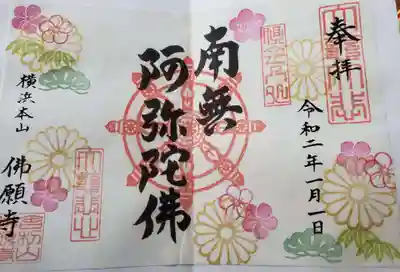 奉拝
令和二年一月一日
南無
阿弥陀佛
横浜本山
佛願寺